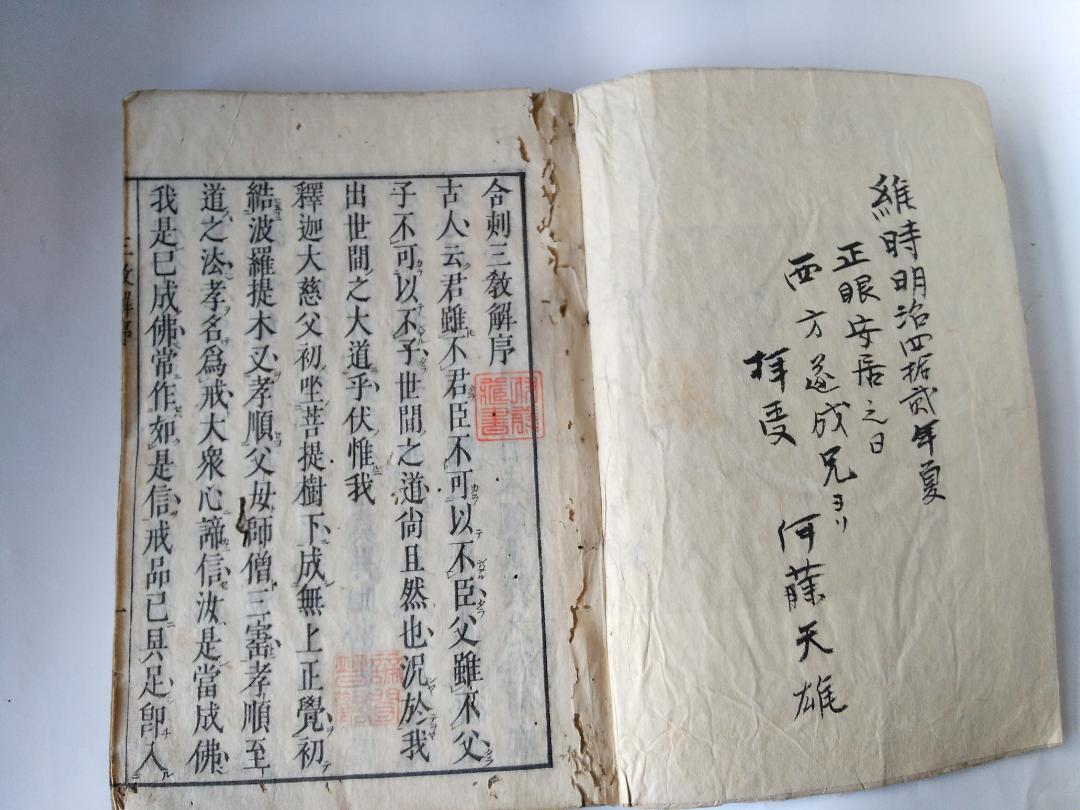 維時明治四拾貳年夏
正眼安居之日
西方遂成兄ヨリ
拝受　何藤天雄
合刻三敎解序
古人云君雖不君臣不可以不臣父雖不父
子不可以不子世間之道尙且然也況於我
出世間之大道乎伏惟我
釋迦大慈父初坐菩提樹下成無上正覺初
結波羅提木叉孝順父母師僧三寶孝順至
道之法孝名爲戒大衆心諦信汝是當成佛
我是已成佛常作如是信戒品已具足卽入
三敎解序